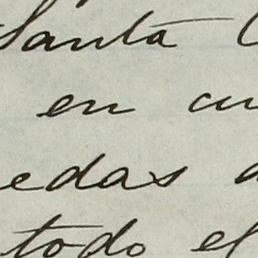 Santa
en cu
edas a
todo el